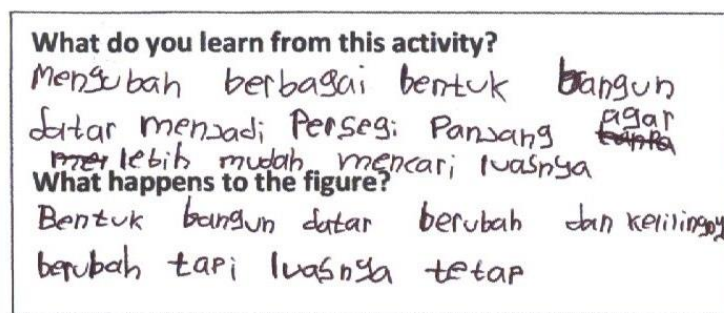 What do you learn from this activity?
Mengubah berbagai bentuk bangun
datar menjadi Persegi Panjang agar
lebih mudah mencari luasnya
What happens to the figure?
Bentuk bangun datar berubah dan kelilingny
berubah tapi luasnya tetap